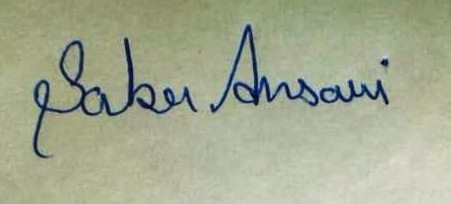 Saker Ansari